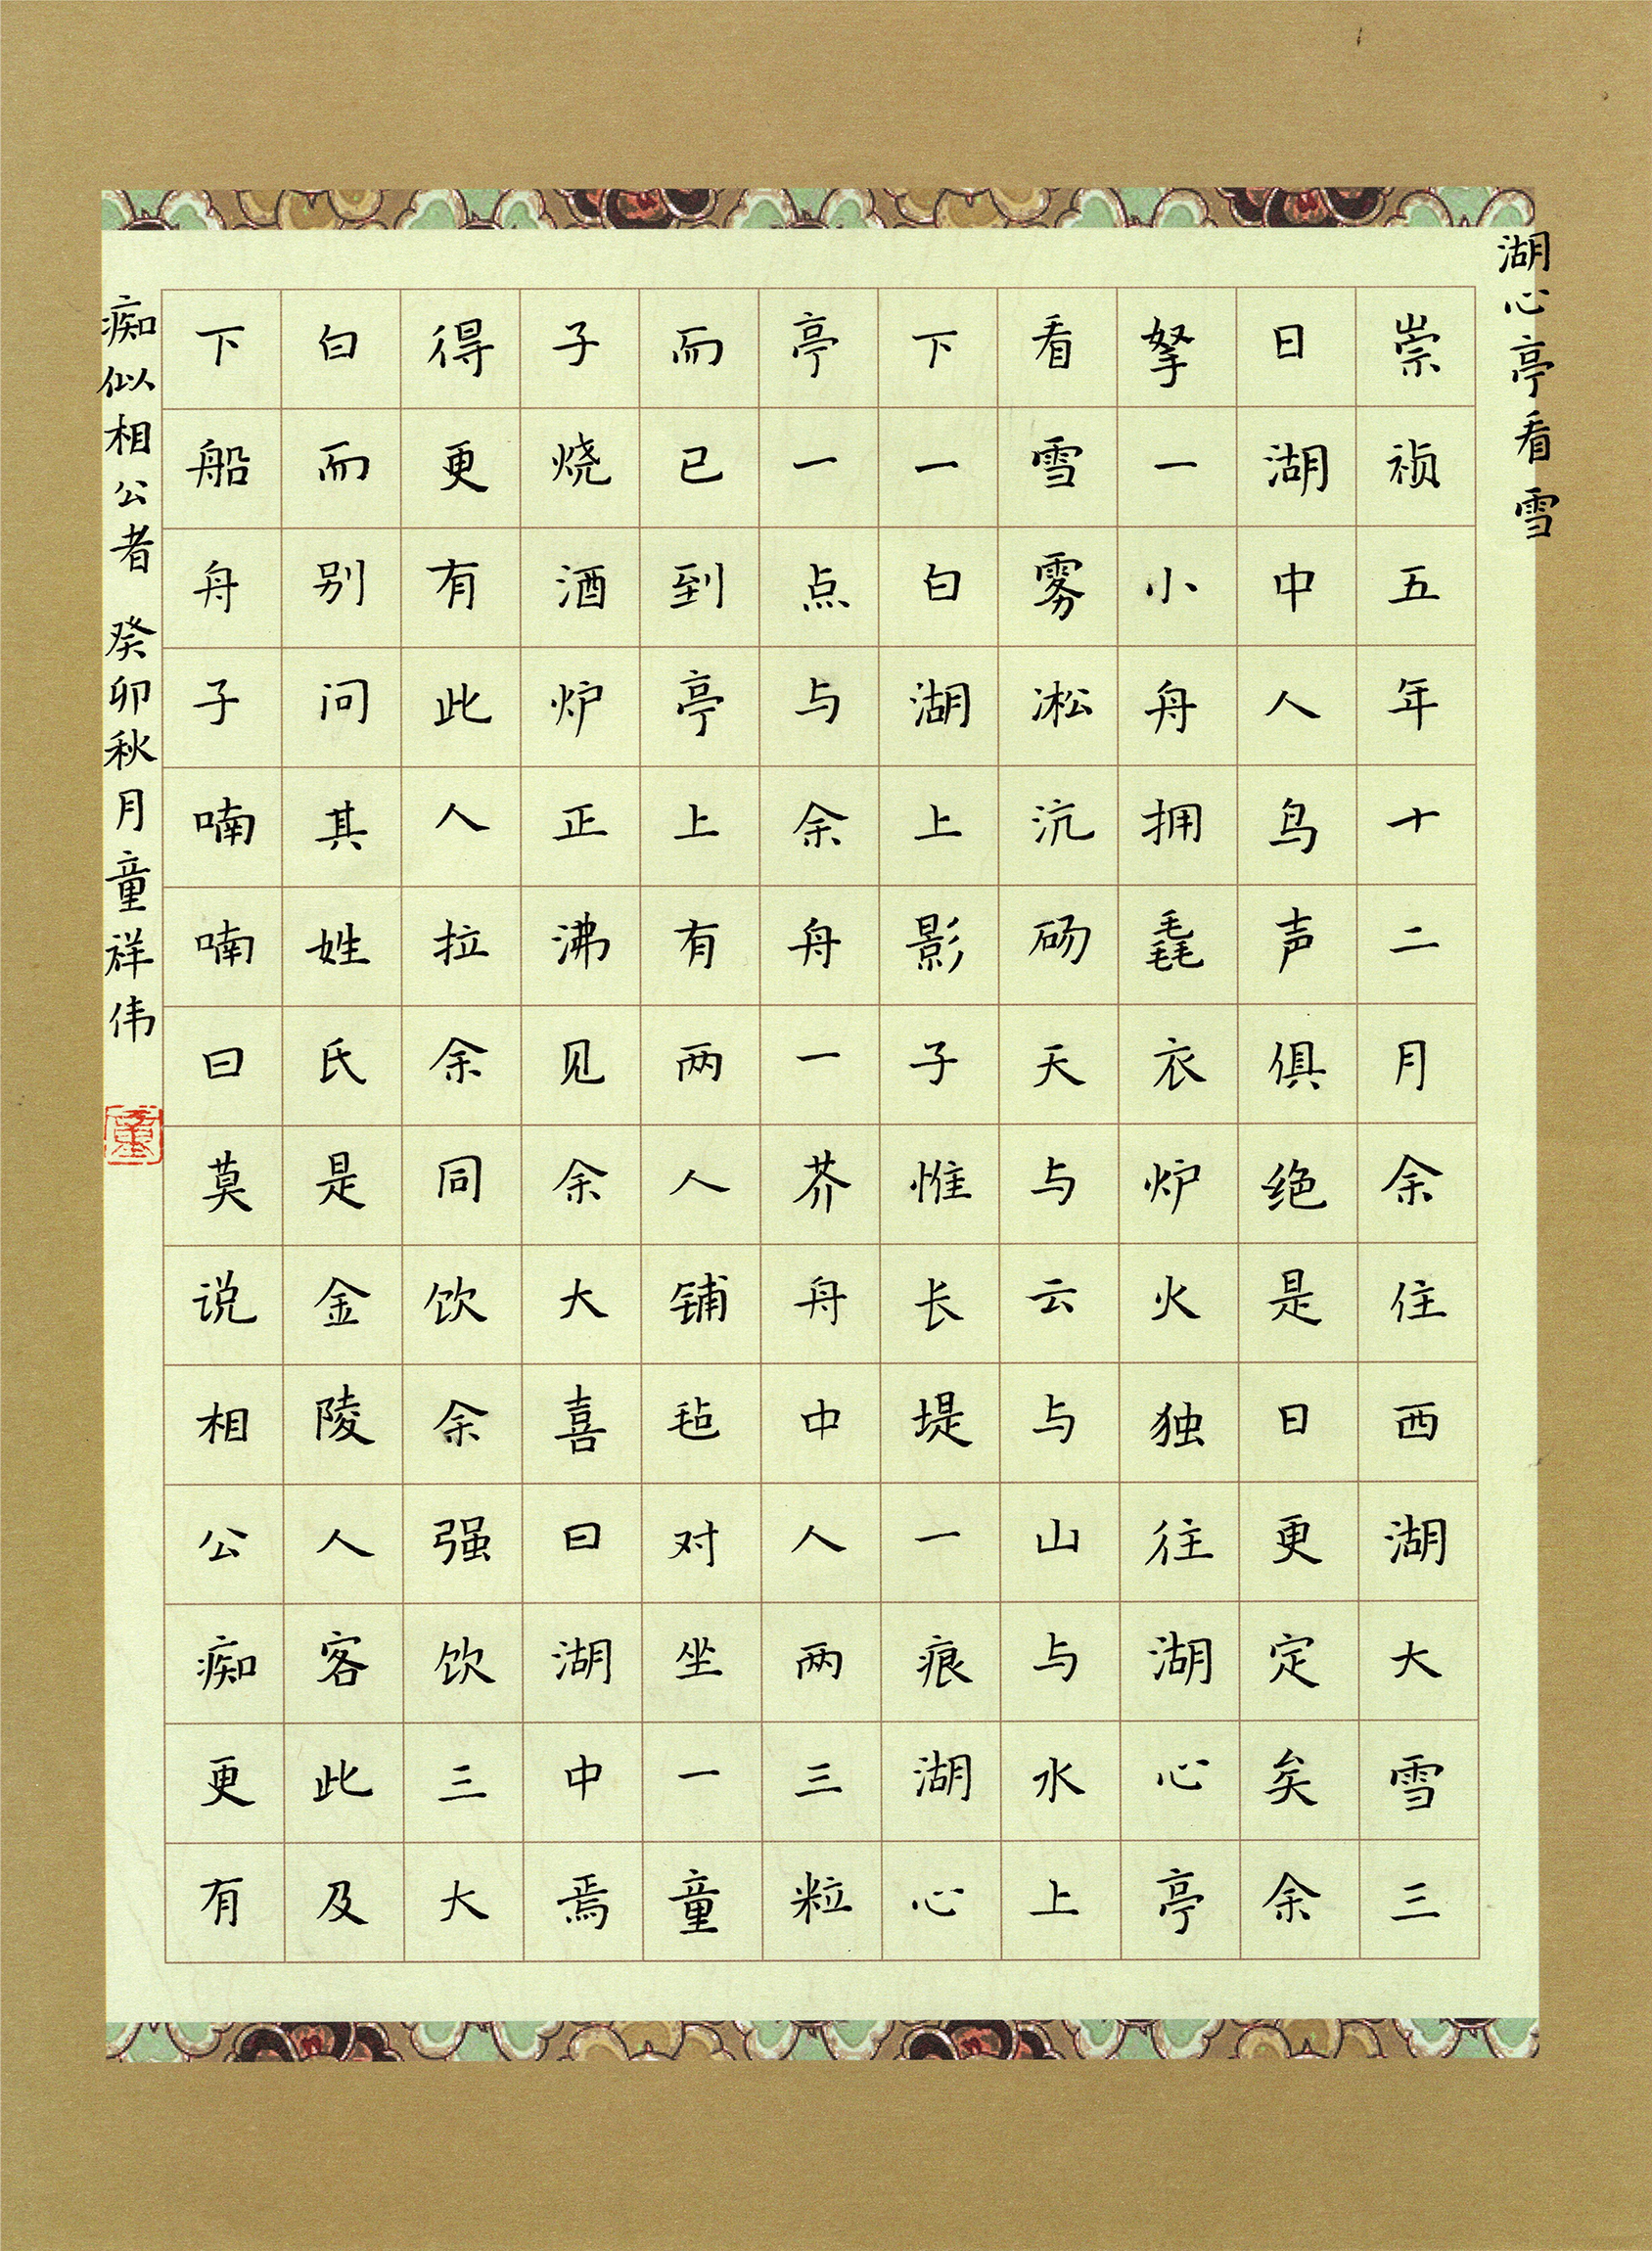 湖心亭看雪
崇祯五年十二月余住西湖大雪三
日湖中人鸟声俱绝是日更定矣余
拏一小舟拥毳衣炉火独往湖心亭
看雪雾凇沆砀天与云与山与水上
下一白湖上影子惟长堤一痕湖心
亭一点与余舟一芥舟中人两三粒
而已到亭上有两人铺毡对坐一童
子烧酒炉正沸见余大喜曰湖中焉
得更有此人拉余同饮余强饮三大
白而别问其姓氏是金陵人客此及
下船舟子喃喃曰莫说相公痴更有
痴似相公者 癸卯秋月童祥伟
童